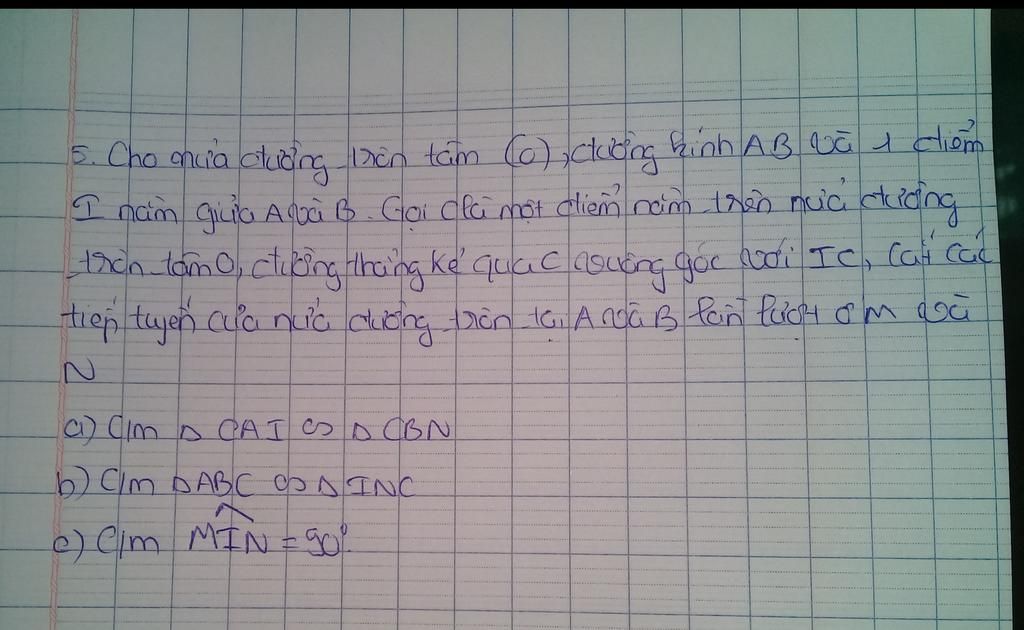 5. Cho nửa đường tròn tâm (O), đường kính AB và 1 điểm
I nằm giữa A và B. Gọi C là một điểm nằm trên nửa đường
tròn tâm O, đường thẳng kẻ qua C vuông góc với IC, cắt các
tiếp tuyến của nửa đường tròn tại A và B lần lượt ở M và
N
a) C/m Δ CAI ∽ Δ CBN
b) C/m Δ ABC ∽ Δ INC
c) C/m MIN = 90°.